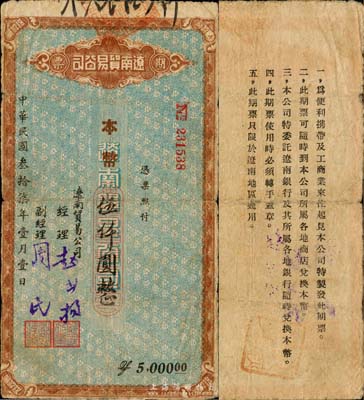 遼南貿易公司
期
票
No 231538
憑票照付
本幣伍仟圓整
遼南貿易公司
經理
副經理
周民
中華民國叁拾柒年壹月壹日
5.00000
一，為便利攜帶及工商業來往起見本公司特製發此期票。
二，此期票可隨時到本公司所屬各地商店兌換本幣。
三，本公司特委託遼南銀行及其所屬各地銀行隨時兌換本幣。
四，此期票使用時必須轉手蓋章。
五，此期票只限於遼南地區適用。